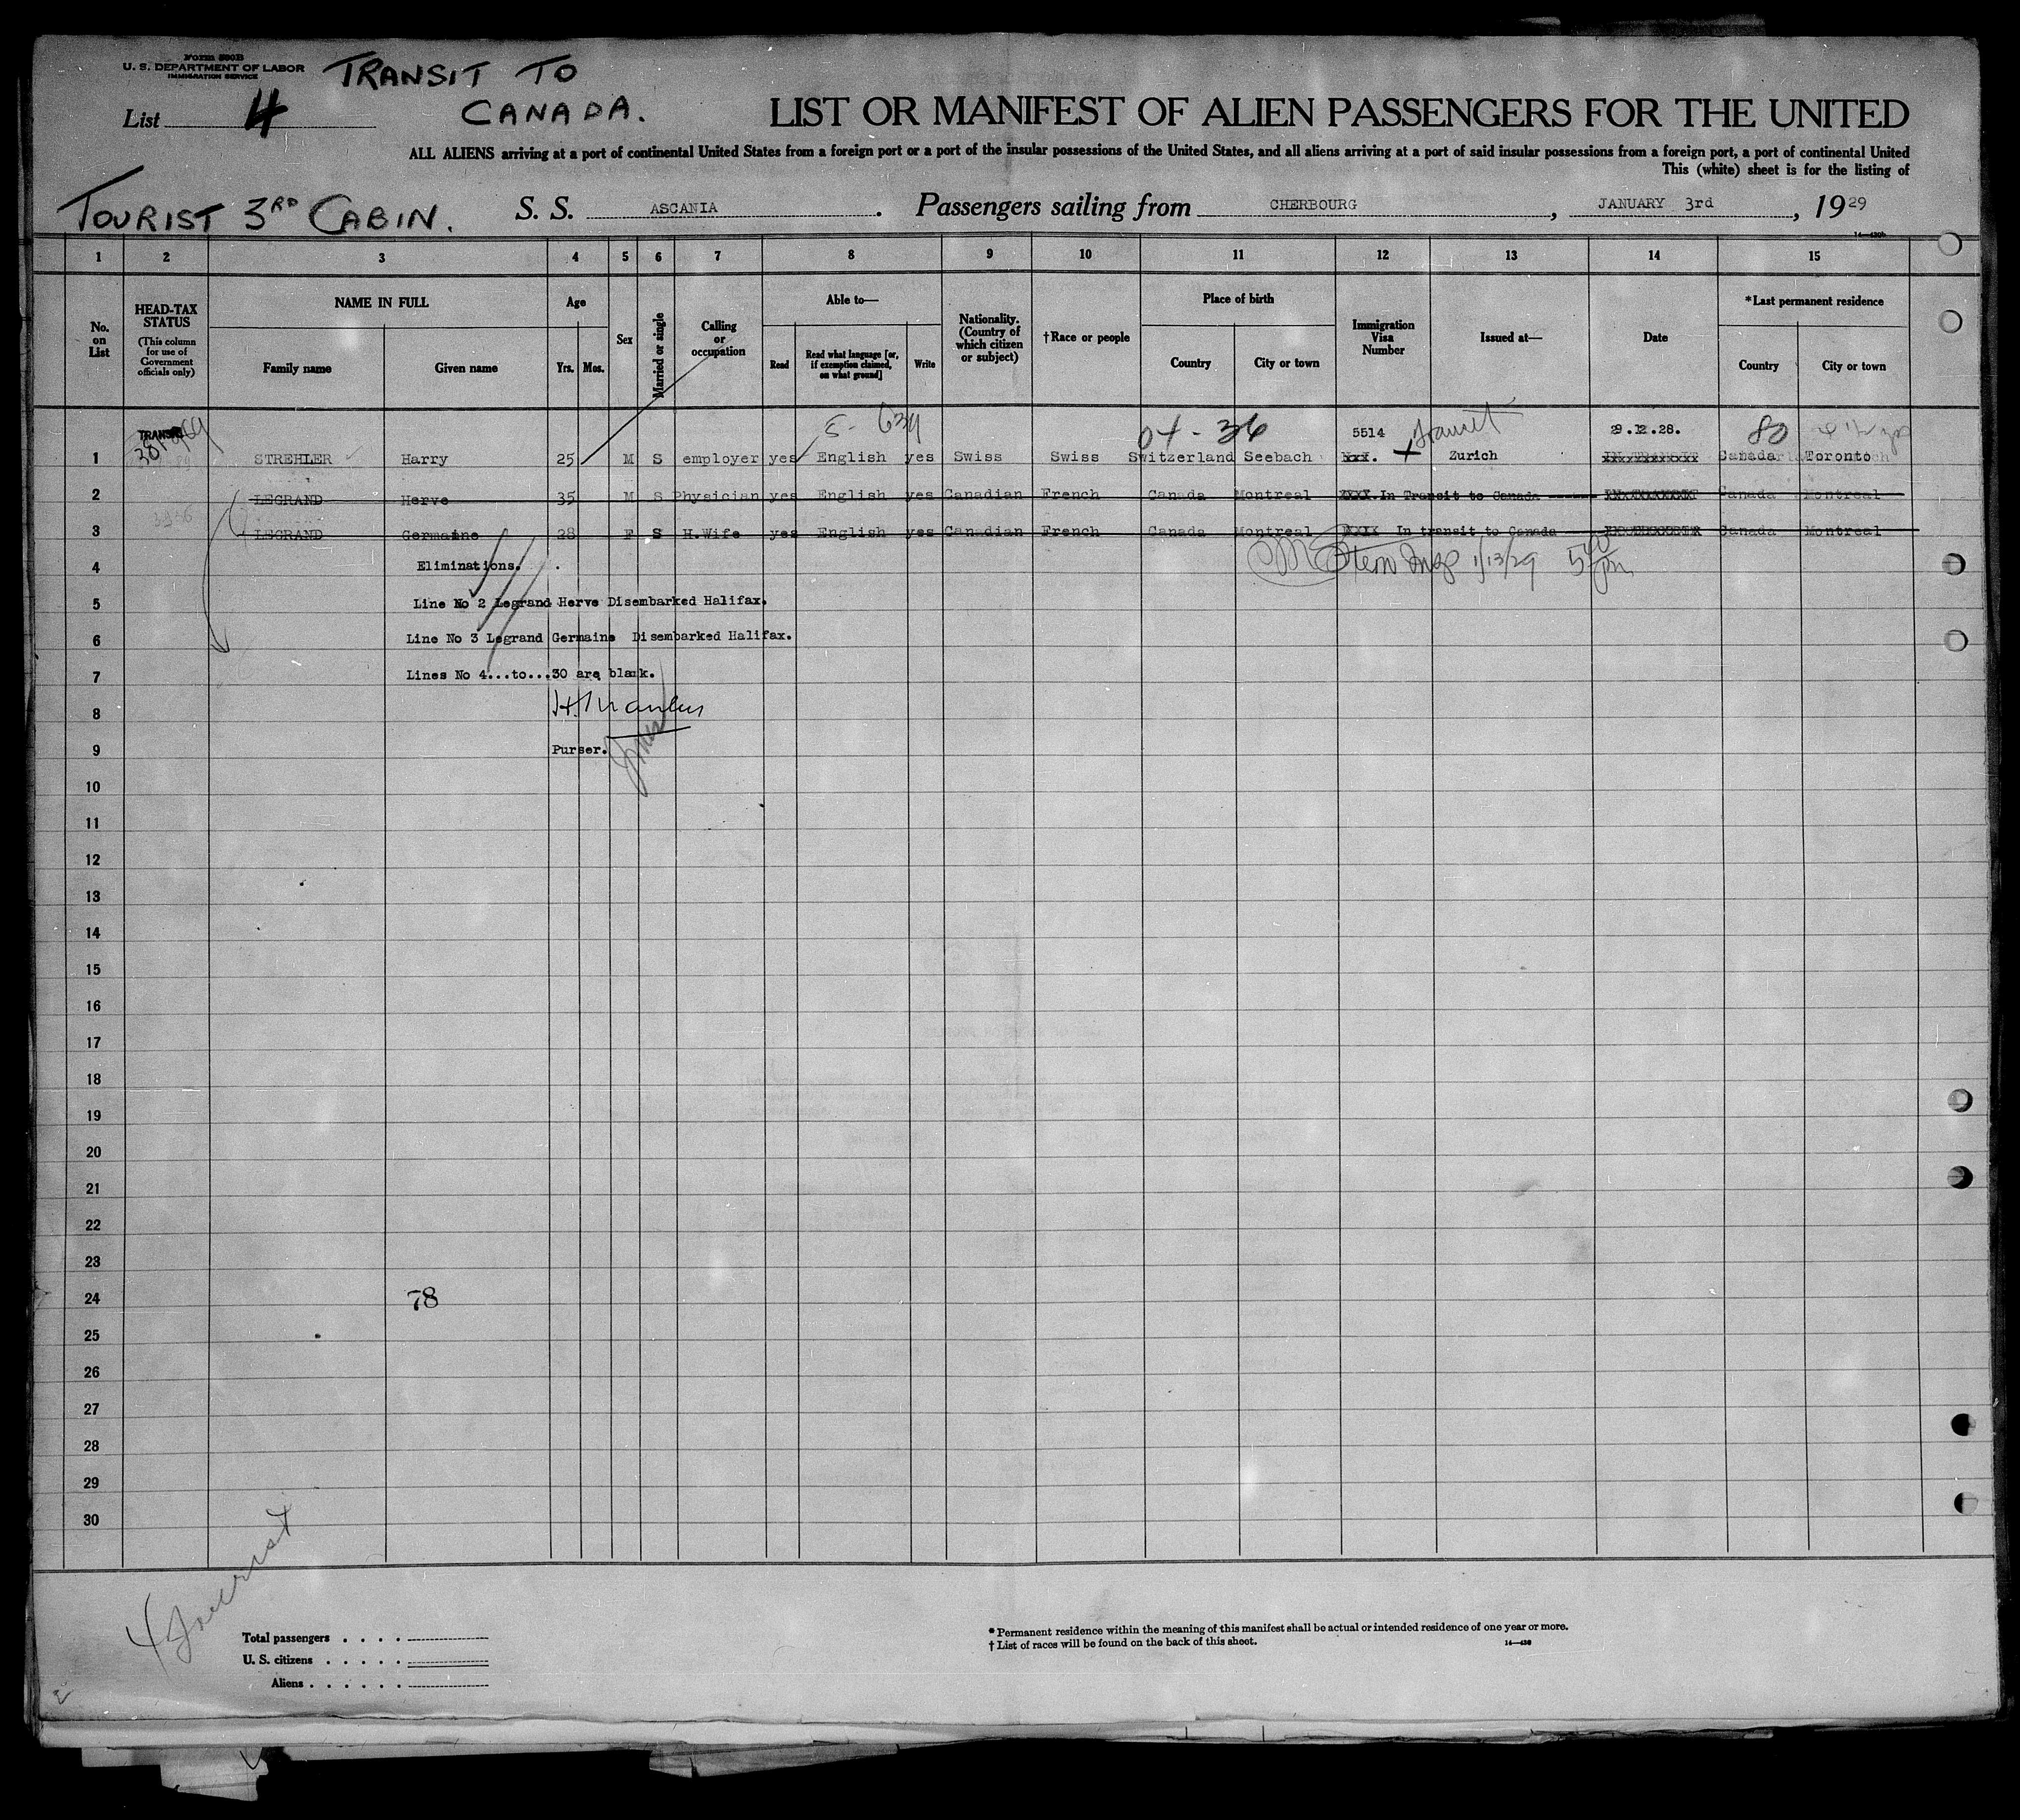 Form 500B
U. S. DEPARTMENT OF LABOR
IMMIGRATION SERVICE
TRANSIT TO
CANADA.
List 4
LIST OR MANIFEST OF ALIEN PASSENGERS FOR THE UNITED
ALL ALIENS arriving at a port of continental United States from a foreign port or a port of the insular possessions of the United States, and all aliens arriving at a port of said insular possessions from a foreign port, a port of continental United
This (white) sheet is for the listing of
TOURIST 3RD CABIN. S. S. ASCANIA. Passengers sailing from CHERBOURG, JANUARY 3rd, 1929
1 2 3 4 5 6 7 8 9 10 11 12 13 14 15
No. on List
HEAD-TAX STATUS (This column for use of Government officials only)
NAME IN FULL
Family name Given name
Age
Yrs. Mos.
Sex
Married or single
Calling or occupation
Able to—
Read Read what language [or, if exemption claimed, on what ground] Write
Nationality. (Country of which citizen or subject)
†Race or people
Place of birth
Country City or town
Immigration Visa Number
Issued at—
Date
*Last permanent residence
Country City or town
TRANSIT 04-36 5514 Transit 80
1 STREHLER Harry 25 M S employer yes English yes Swiss Swiss Switzerland Seebach Zurich Canada Toronto
2 LEGRAND Herve 35 M S Physician yes English yes Canadian French Canada Montreal In Transit to Canada Canada Montreal
3 LEGRAND Germaine 28 F S H.Wife yes English yes Canadian French Canada Montreal In transit to Canada Canada Montreal
4 Eliminations. 1/13/29
5 Line No 2 Legrand Herve Disembarked Halifax.
6 Line No 3 Legrand Germaine Disembarked Halifax.
7 Lines No 4...to...30 are blank.
8
9 Purser.
10
11
12
13
14
15
16
17
18
19
20
21
22
23
24 78
25
26
27
28
29
30
Tourist
Total passengers
U. S. citizens
Aliens
* Permanent residence within the meaning of this manifest shall be actual or intended residence of one year or more.
† List of races will be found on the back of this sheet.